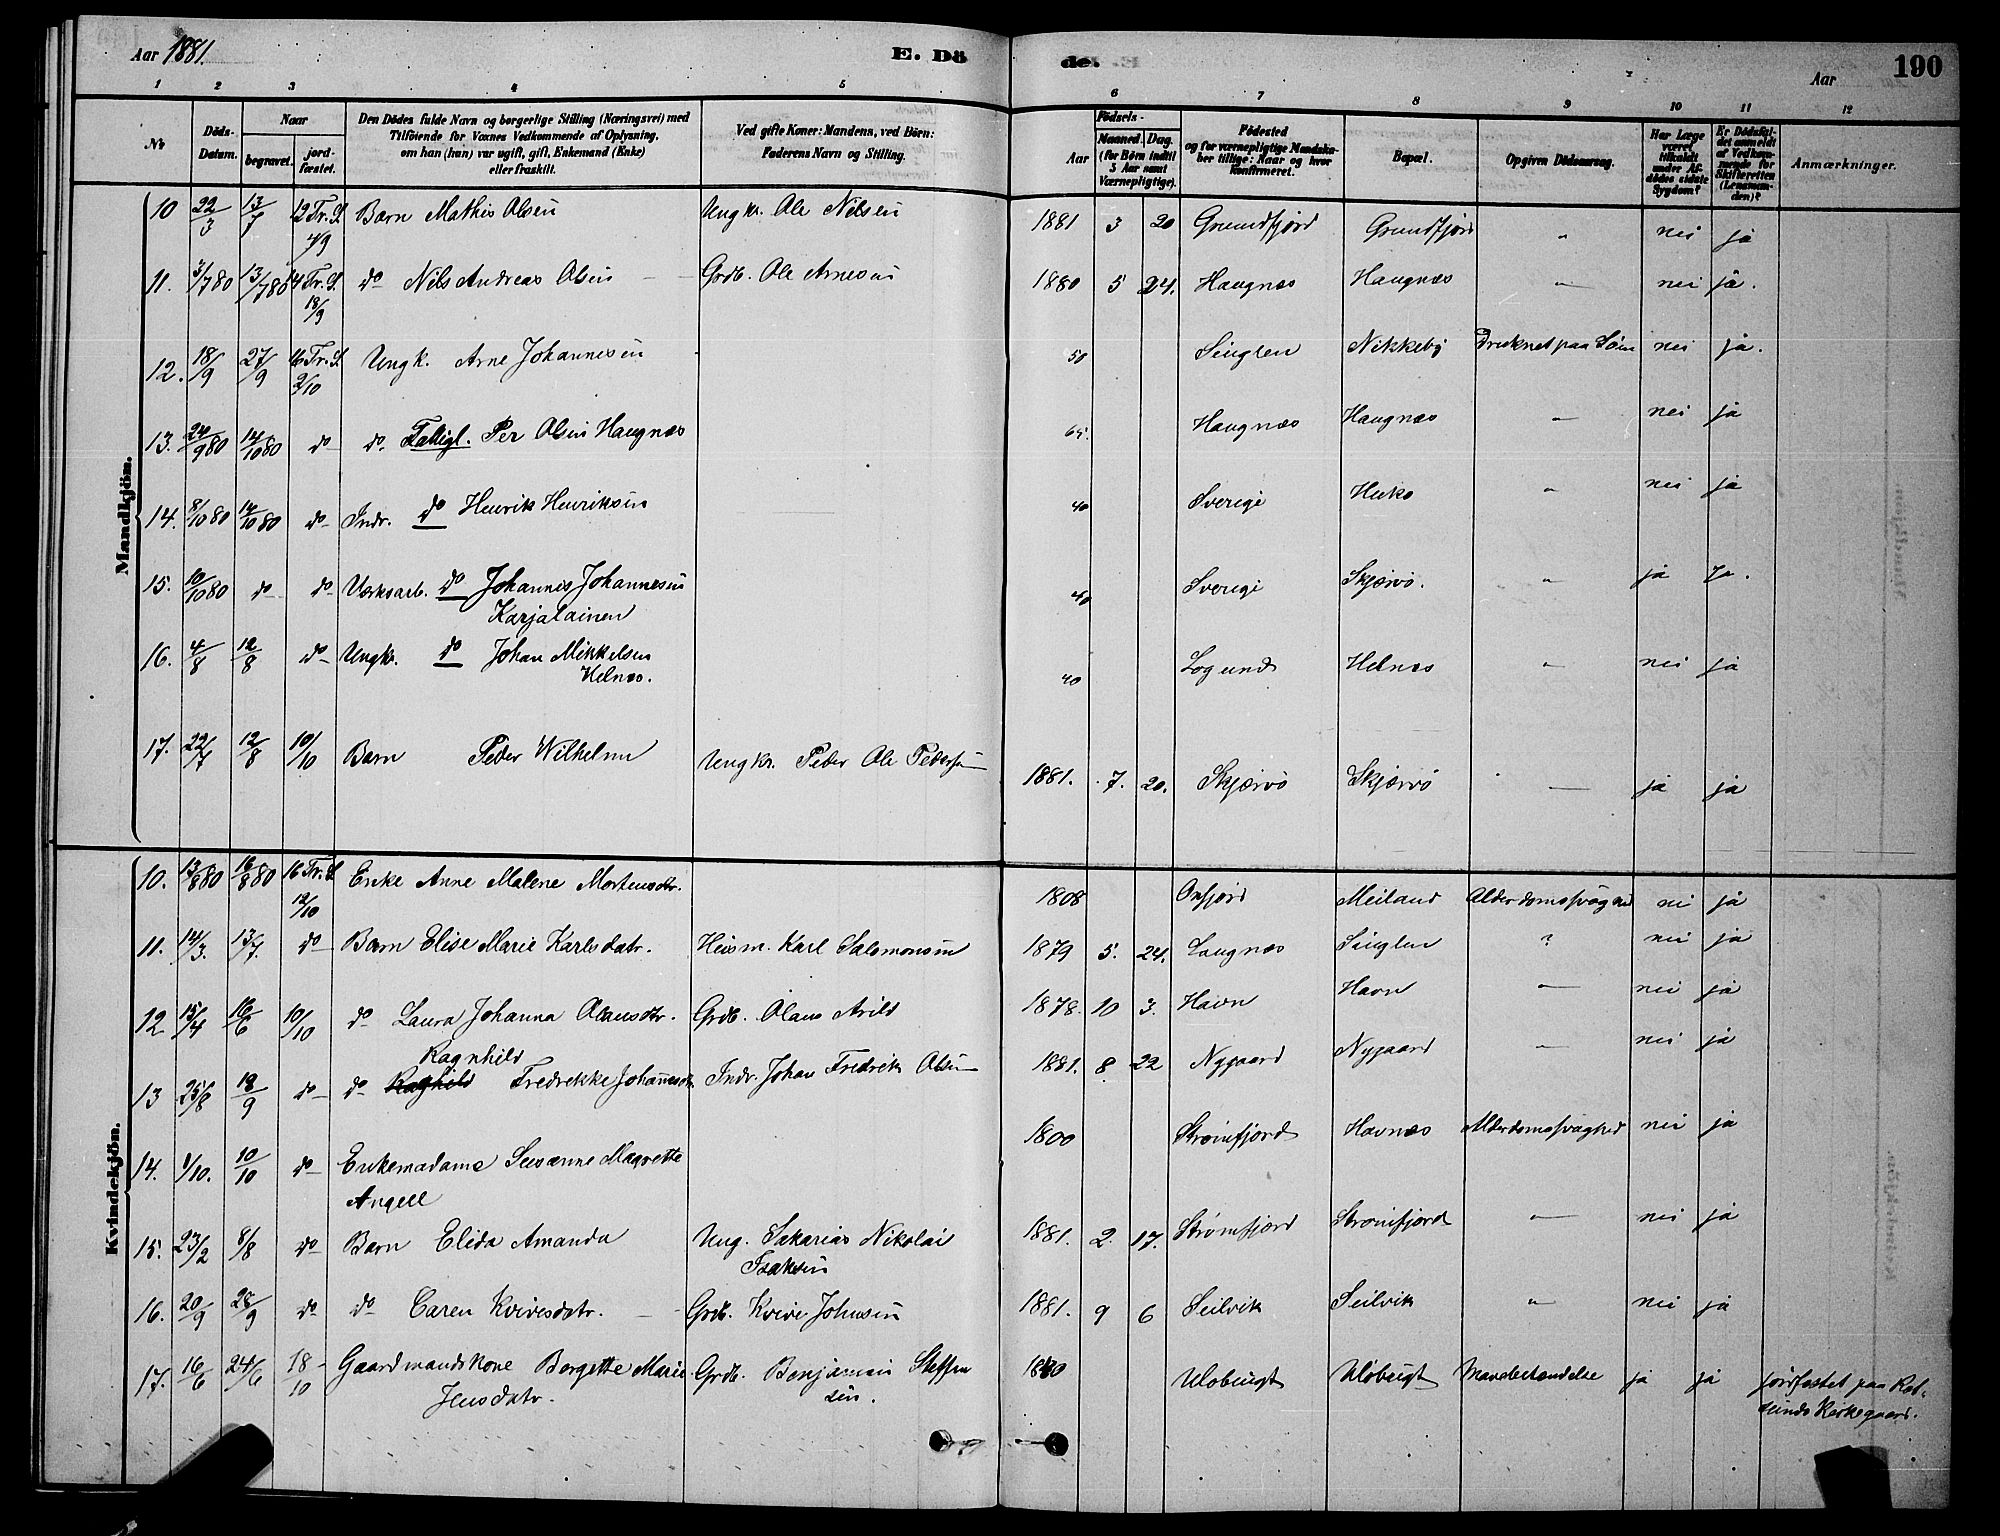 Aar 1881. E. Dö de. Aar 190
1 2 3 4 5 6 7 8 9 10 11 12
No Döds-Datum. Naar begravet. jordfæstet. Den Dödes fulde Navn og borgerlige Stilling (Næringsvei) med Tilföiende for Voxnes Vedkommende af Oplysning, om han (hun) var ugift, gift, Enkemand (Enke) eller fraskilt. Ved gifte Koner: Mandens, ved Börn: Faderens Navn og Stilling. Födsels- Aar Maaned. Dag. (for Börn indtil 5 Aar samt Værnepligtige). Födested og for værnepligtige Mandskaber tillige: Naar og hvor konfirmeret. Bopæl. Opgiven Dödsaarsag. Har Læge været tilkaldt under Afdödes sidste Sygdom? Er Dödsfaldet anmeldt af Vedkommende for Skifteretten (Lensmanden)? Anmærkninger.
Mandkjön.
10 22/3 13/7 12 Tr. S. 4/9 Barn Mathis Olsen Ungkr. Ole Nilsen 1881 3 20 Grundfjord Grundfjord " nei ja
11. 3/7 80 13/7 80 14 Tr. S. 18/9 do Nils Andreas Olsen Grdb. Ole Arnesen 1880 5 24. Haugnæs Haugnæs — nei ja.
12. 18/9 27/9 16 Tr. S. 2/10 Ungk. Arne Johannesen 50 Singlen Nikkeby Druknet paa Søen nei ja.
13. 24/9 80 14/10 80 do do Fattigl. Per Olsen Haugnæs 65. Haugnæs Haugnæs — nei ja
14. 8/10 80 14/10 80 do Indr. do Henrik Henriksen 40 Sverige " nei ja
15. 10/10 80 do do Værksarb. do Johannes Johannesen 40 Sverige Skjærvö. " ja Ja.
Karjalainen
16. 4/8 12/8 do Ungkr. do Johan Mikkelsen 40 Logsund Helnæs " nei ja
Helnæs.
17. 22/7 12/8 10/10 Barn Peder Wilhelm Ungkr. Peder Ole Pedersen 1881. 7. 20. Skjærvö Skjærvö — ja ja
Kvindekjön.
10. 13/8 80 16/8 80 16 Tr. S. 12/10 Enke Anne Malene Mortensdtr. 1808 Oxfjord Meiland Alderdomssvaghed nei ja
11. 14/3. 13/7. do Barn Elise Marie Karlsdatr. Husm. Karl Salomonsen 1879 5. 24. Laugnæs Singlen ? nei ja
12 15/4 16/6 10/10 do Laura Johanna Olausdtr. Grdb. Olaus Arild 1878. 10 3. Havn Havn — nei ja
Ragnhild
13 25/8 18/9 do do Raghild Fredrikke Johannesdtr. Indr. Johan Fredrik Olsen 1881. 8 22 Nygaard Nygaard — nei ja
14. 1/10. 10/10 do Enkemadame Susanne Magrette 1800 Straumfjord Havnæs Alderdomssvaghed nei ja
Angell
15. 23/2 8/8 do Barn Elida Amanda Ung. Sakarias Nikolai 1881. 2. 17. Strømfjord Stromfjord — nei ja
Isaksen
16. 20/9 28/9 do do Caren Kvivesdatr. Grdb. Kvive Johnsen 1881. 9 6 Seilvik Seilvik " nei ja
17. 16/6 24/6 18/10 Gaardmandskone Borgette Marie Grdb. Benjamin Steffen Uløbugt Uløbugt Mavebetændelse ja ja jordfæstet paa Rot-
Jensdatr. sen. sunds Kirkegaard.